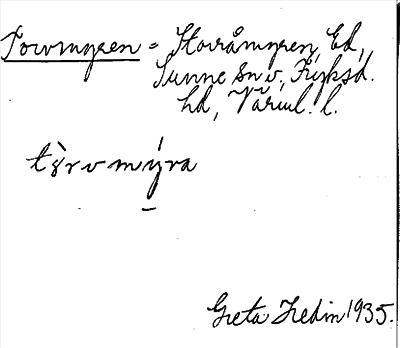 Torvmyren = Storåmyren, Ed,
Sunne snv, Fryksd.
hd, Värml. l.
tòrvmýra
Greta Hedin 1935.